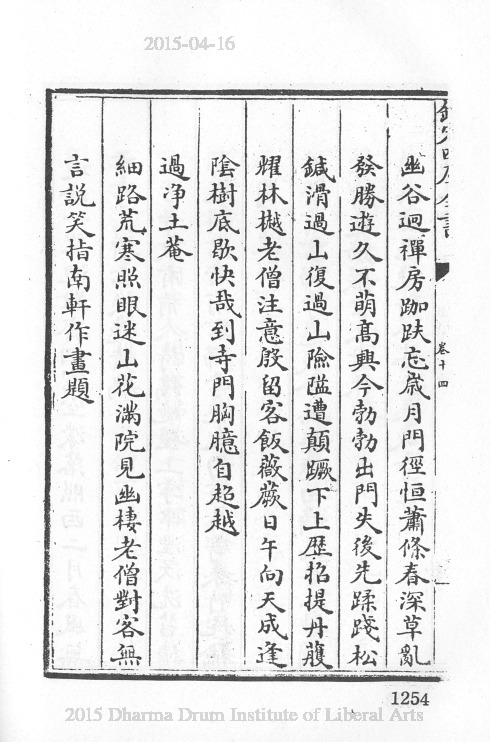 2015-04-16
幽谷迥禪房跏趺忘歲月門徑恒蕭條春深草亂
發勝遊久不萌高興今勃勃出門失後先蹂踐松
鍼滑過山復過山險隘遭顛蹶下上歷招提丹雘
耀林樾老僧注意殷留客飯薇蕨日午向天成逢
陰樹底歇快哉到寺門胸臆自超越
過浄土菴
細路荒寒照眼迷山花滿院見幽棲老僧對客無
言說笑指南軒作畫題
卷十四
1254
2015 Dharma Drum Institute of Liberal Arts